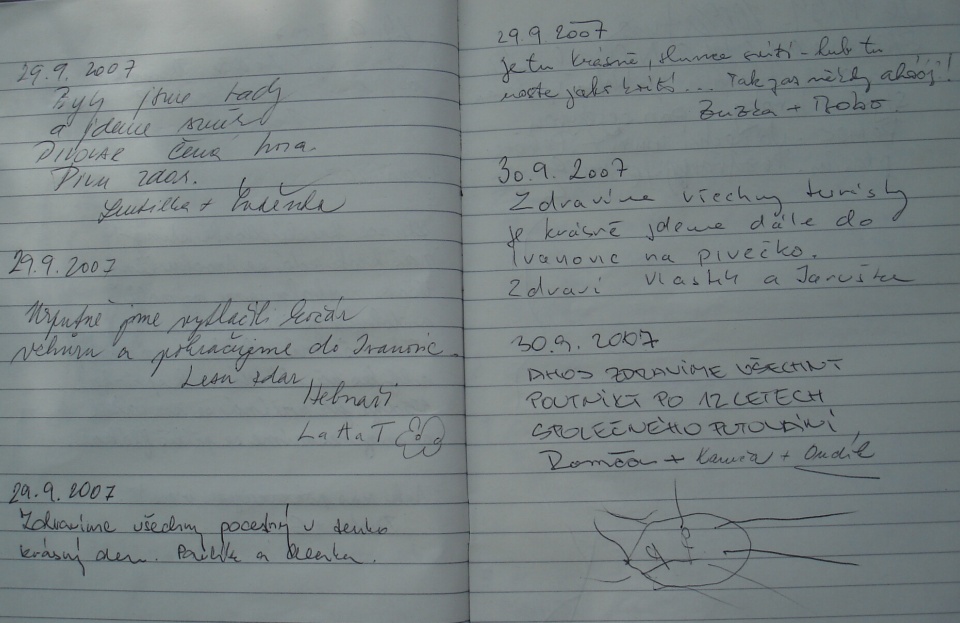 29.9. 2007
Byly jsme tady
a jdeme směr
PIVOVAR Černá hora.
Pivu zdar.
Ludmilka + Zuděnka
29.9. 2007
Urputně jsme vytlačili kočár
vchůru a pokračujeme do Ivanovic.
Lesu zdar
L a H a T
29.9. 2007
Zdravíme všechny pocestný v tenko
krásný den. Pavlík a Blenka.
29.9 2007
Je tu krásně, slunce svítí - kub tu
roste jako kvítí... Tak zas někdy ahóój!
Zuzka + Robo
30.9. 2007
Zdravíme všechny turisty
je krásně jdeme dále do
Ivanovic na pivečko.
Zdraví Vlastík a Jaruška
30.9. 2007
AHOJ ZDRAVÍME VŠECHNY
POUTNÍKY PO 12 LETECH
SPOLEČNÉHO PUTOVÁNÍ,
Romča + Kamča + Ondík